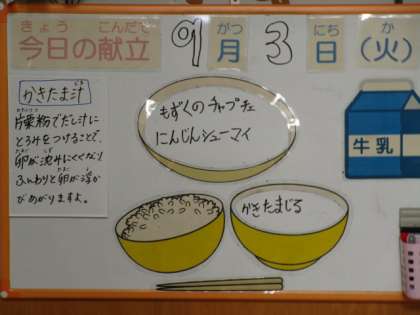 きょう こんだて
今日の献立
9月3日(火)
がつ にち か
かきたま汁
片栗粉でだし汁に
とろみをつけることで、
卵が沈みにくくなり
ふんわりと卵が浮か
びあがりますよ。
もずくのチャプチェ
にんじんシューマイ
牛乳
かきたまじる